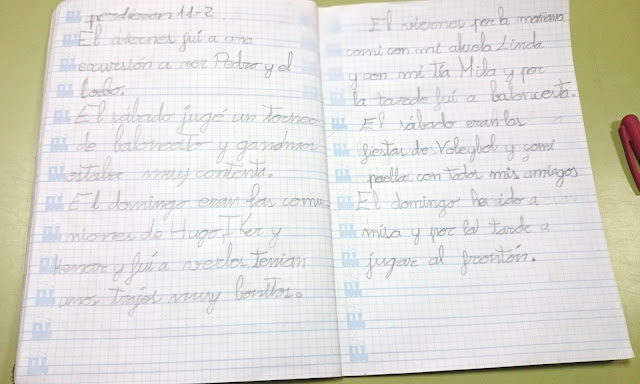 perdieron 11-2
El viernes fui a una
excursión a ver Pedro y el
lobo.
El sábado jugé un torneo
de baloncesto y ganamos
estaba muy contenta.
El domingo eran las comu
niones de Hugo, Iker y
y fui a verlos tenian
unos trajes muy bonitos.
El viernes por la mañana
comi con mi abuela Linda
y con mi tía Mila y por
la tarde fui a baloncesto.
El sábado eran las
fiestas de Voleybol y comi
paella con todos mis amigos
El domingo he ido a
misa y por la tarde a
jugar al frontón.